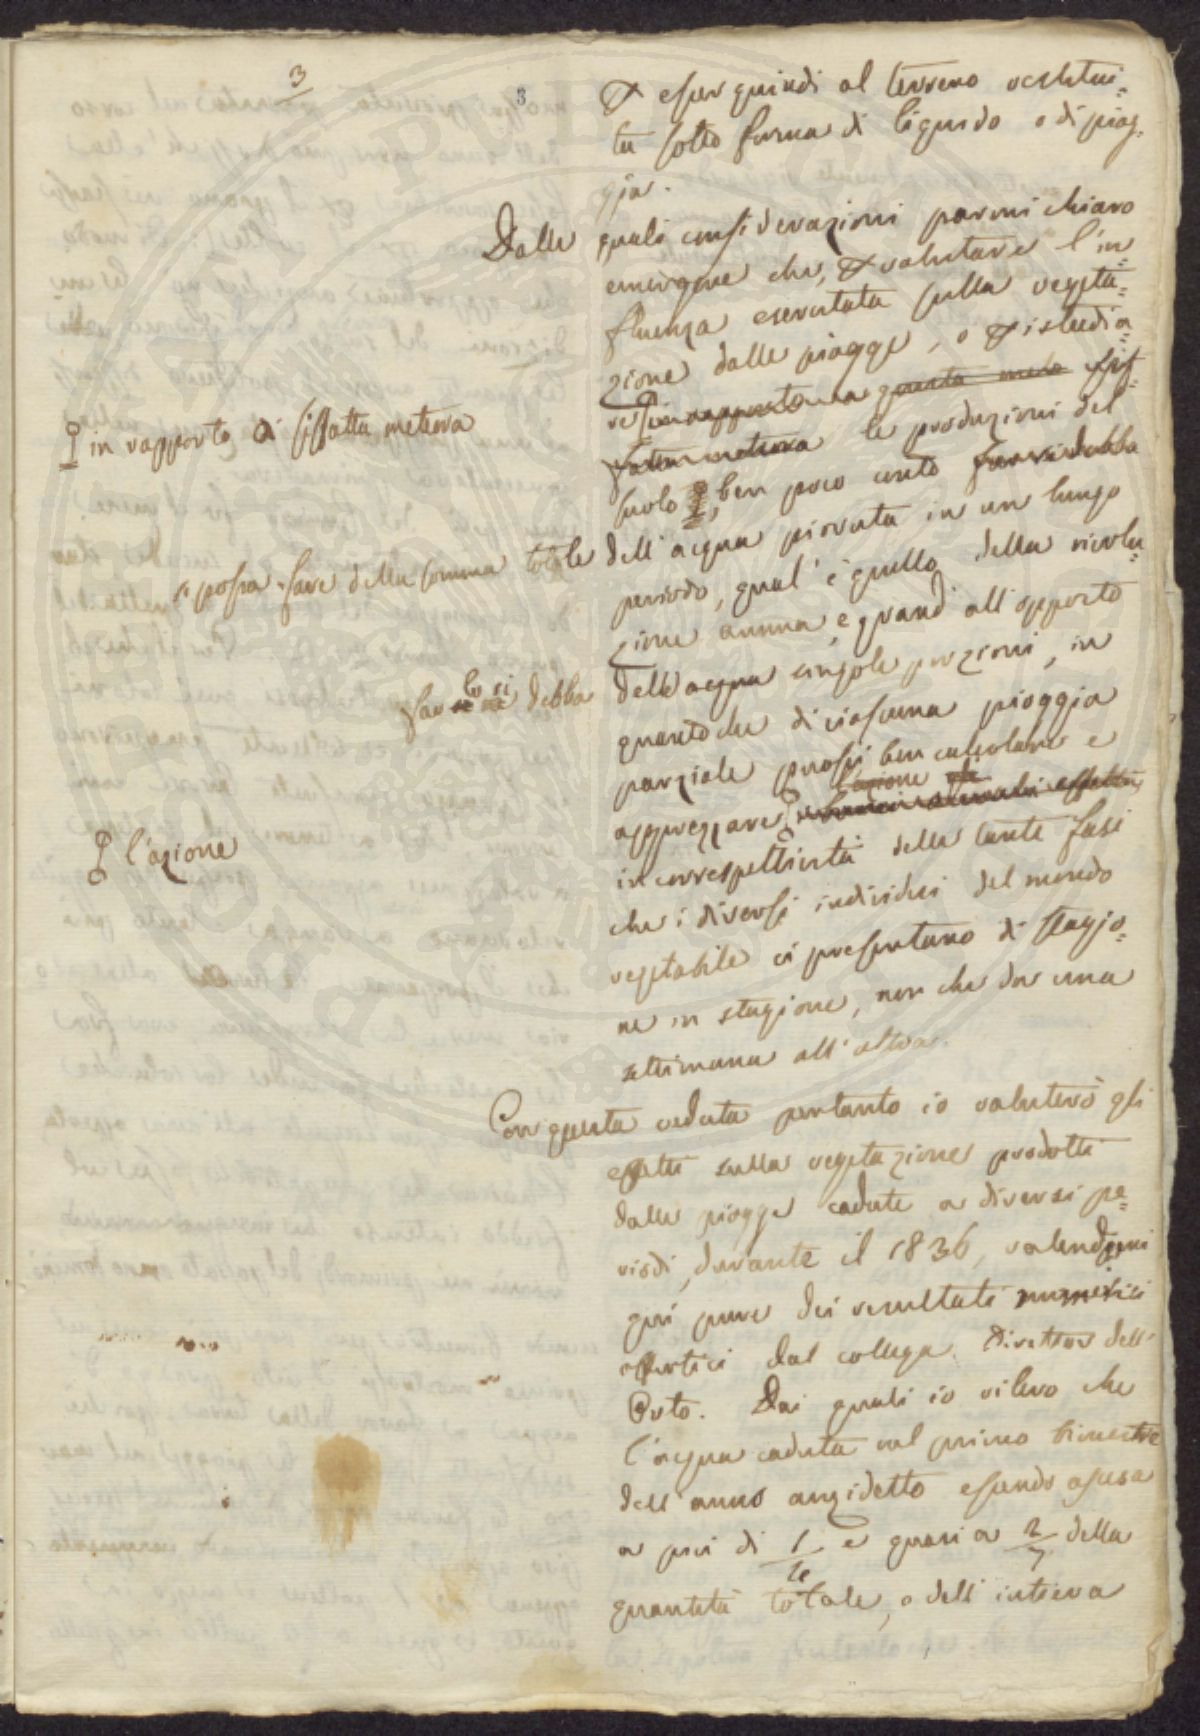 3
3
esser quindi al terreno restitui=
ta sotto forma di liquido o di piog=
gia.
Dalle quali considerazioni parmi chiaro
emergere che, valutare l'in=
fluenza esercitata sulla vegeta=
zione dalle piogge, o istudia=
re in rapporto a questa meteora
in rapporto di siffatta meteora
le produzioni del
suolo, ben poco conto farsi debba
si possa fare della somma totale dell'acqua piovuta in un lungo
periodo, qual'è quello della rivolu=
zione annua, e quando all'opposto
far lo si debba dell'acqua singole porzioni, in
quantoche di ciascuna pioggia
parziale puossi ben calcolare e
apprezzare l'azione
l'azione
in correspettività delle tante fasi
che i diversi individui del mondo
vegetabile ci presentano di stagio=
ne in stagione, non che da una
settimana all'altra.
Con questa veduta pertanto io valuterò gli
effetti sulla vegetazione prodotti
dalle piogge cadute a diversi pe=
riodi, durante il 1836, valendomi
qui pure dei resultati numerici
offertici dal collega Direttore dell'
Orto. Dai quali io rilevo che
l'acqua caduta nel primo bimestre
dell'anno anzidetto essendo ascesa
a più di e quasi a 2/7 della
quantità totale, o dell'intiera